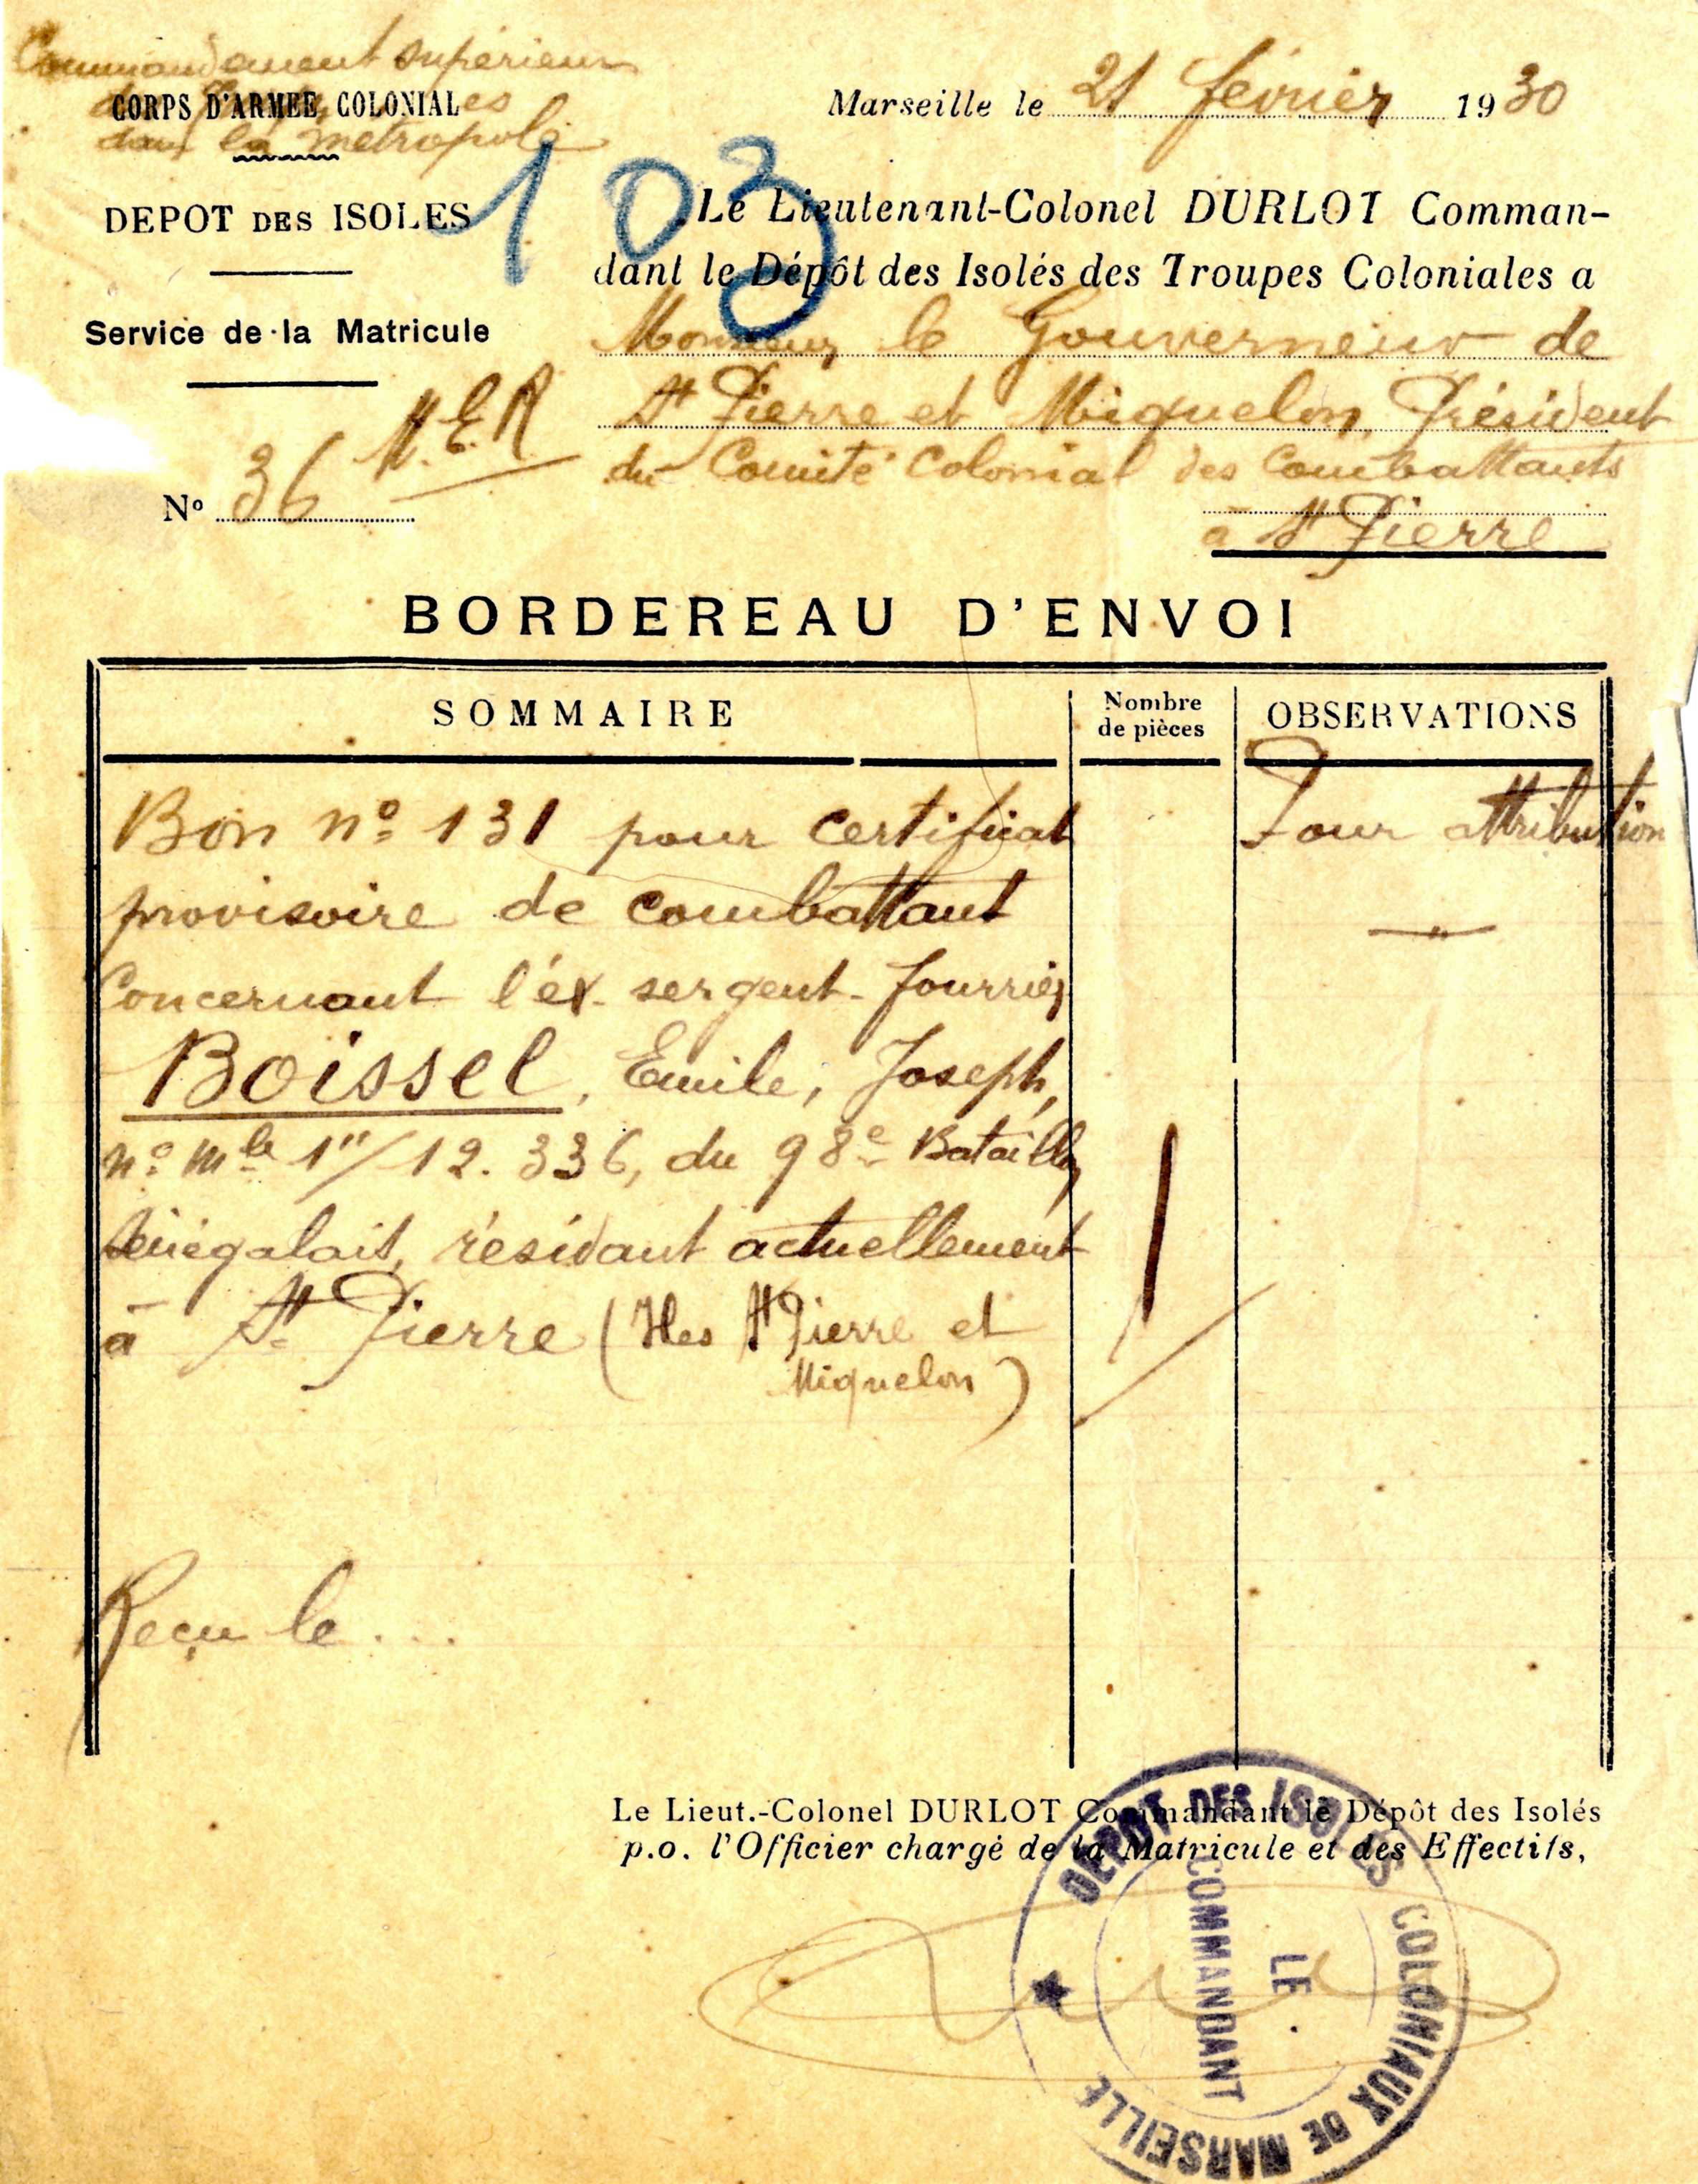 Commandement supérieur
CORPS D'ARMEE COLONIAL
dans la métropole
DEPOT DES ISOLES
Service de la Matricule
M.E.R
Nº 36
Marseille le 21 février 1930
103
Le Lieutenant-Colonel DURLOT Comman-
dant le Dépôt des Isolés des Troupes Coloniales a
Monsieur le Gouverneur de
St Pierre et Miquelon, Président
du Comité Colonial des Combattants
à St Pierre
BORDEREAU D'ENVOI
SOMMAIRE
Nombre
de pièces
OBSERVATIONS
Bon nº 131 pour certificat
provisoire de combattant
Concernant l'ex-sergent-fourrier
Boissel, Emile, Joseph,
nº mle 1"/12.336, du 98e Bataillon
Sénégalais, résidant actuellement
à St Pierre (Iles St Pierre et
Miquelon)
1
Pour attribution
—"—
Reçu le...
Le Lieut.-Colonel DURLOT Commandant le Dépôt des Isolés
p.o. l'Officier chargé de la Matricule et des Effectifs,
DEPOT DES ISOLES COLONIAUX DE MARSEILLE
LE
COMMANDANT